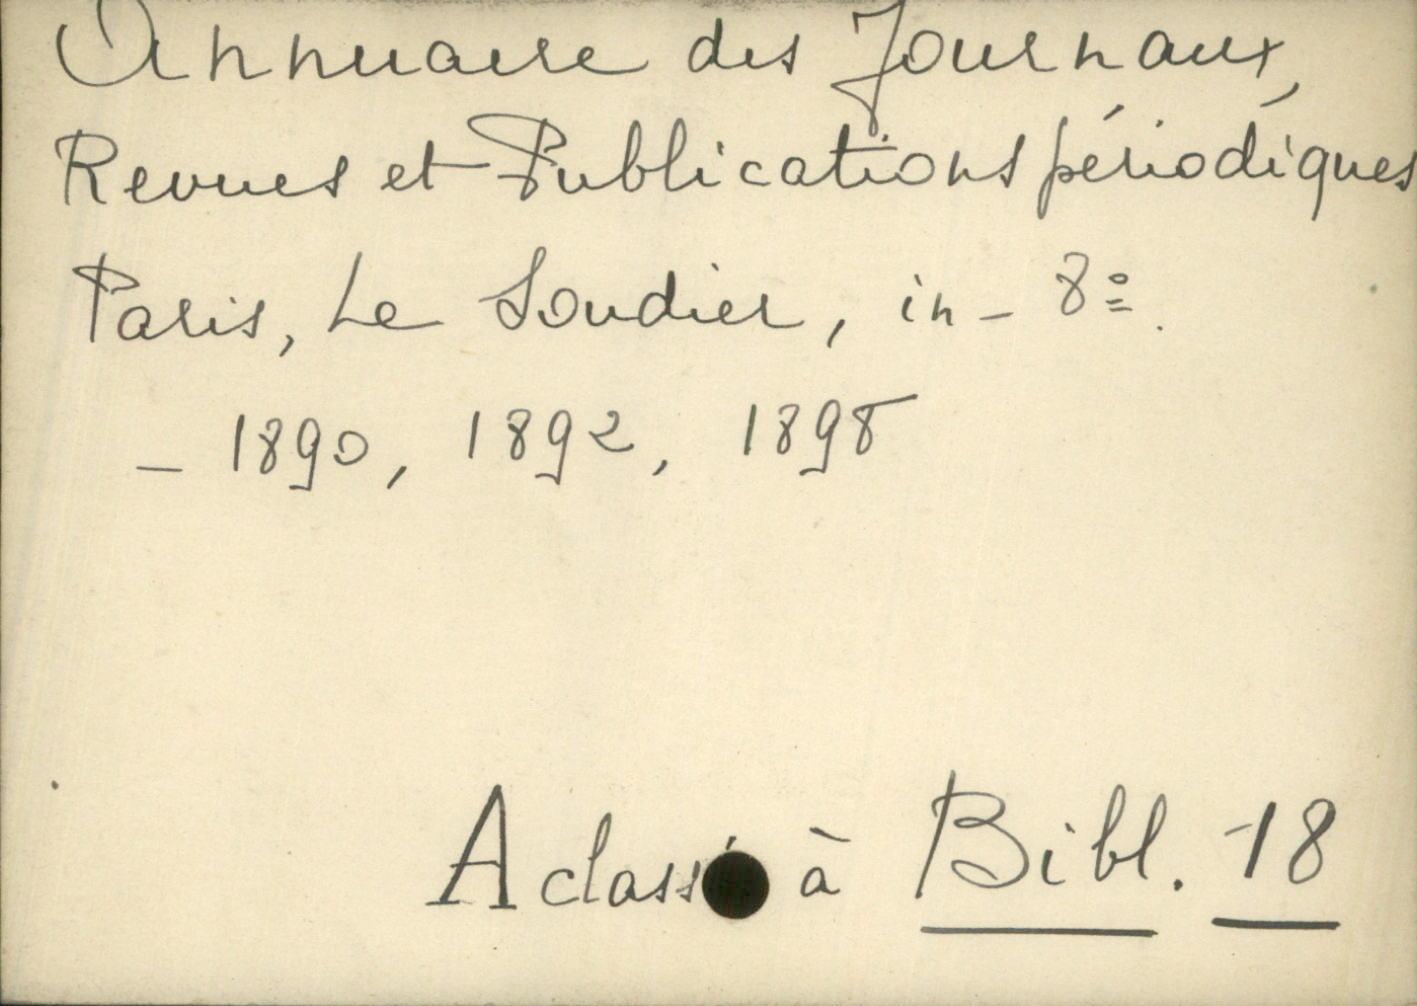 Annuaire des Journaux,
Revues et Publications périodiques
Paris, Le Soudier, in-8º.
- 1890, 1892, 1898
A classé à Bibl. 18